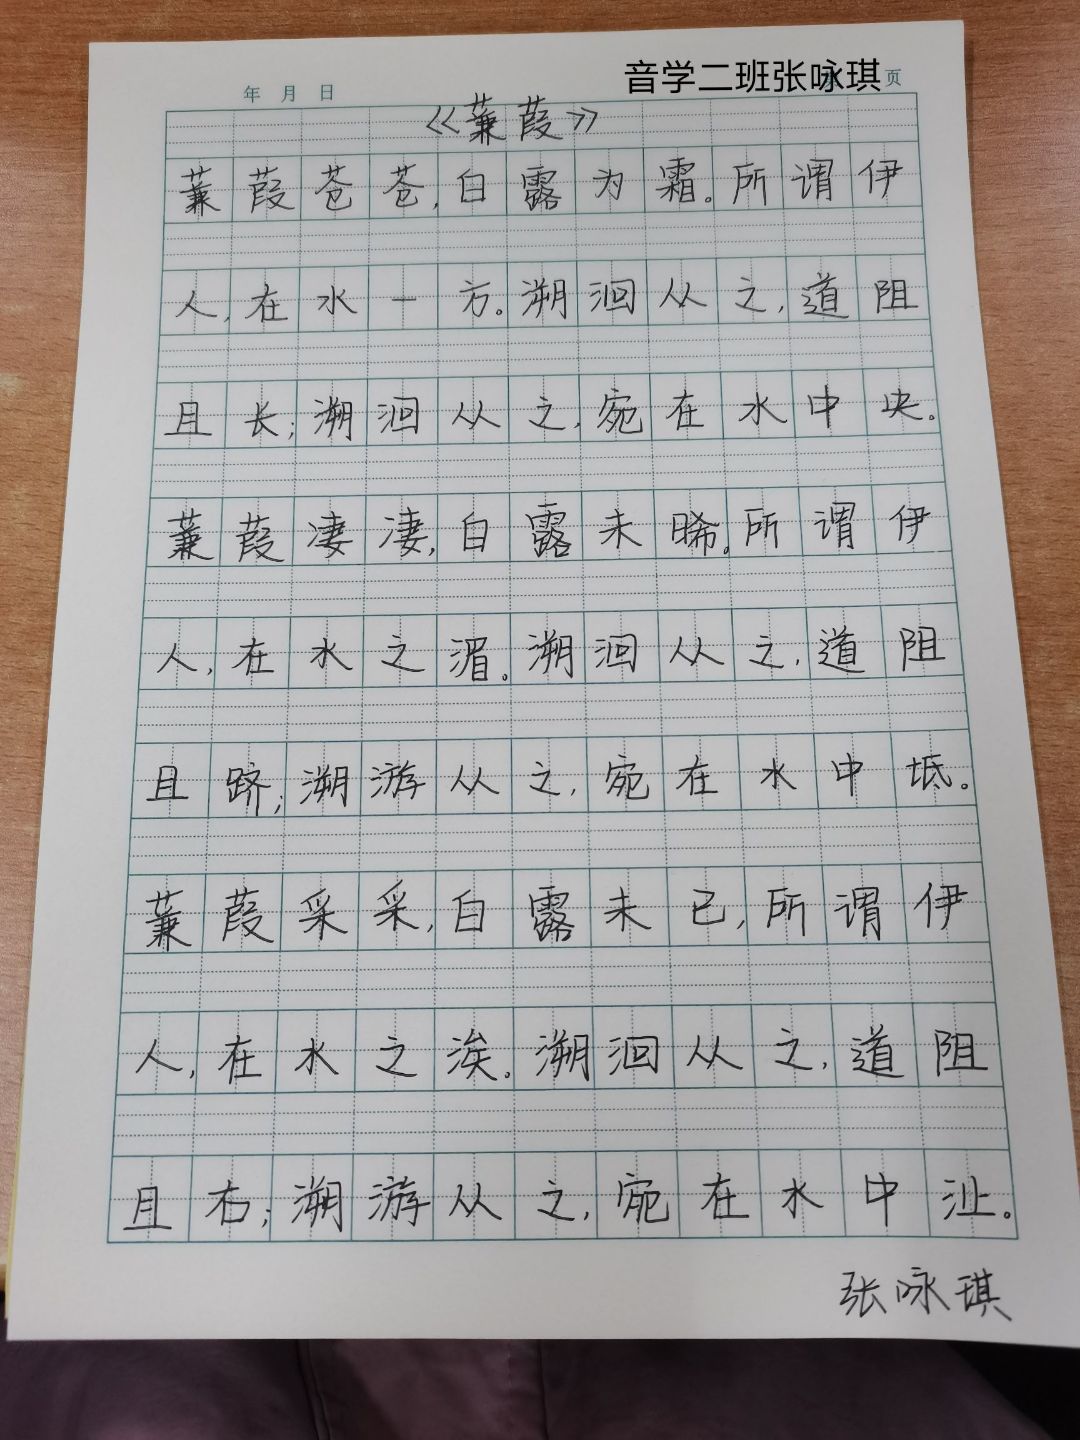 音学二班张咏琪
年 月 日 页
《蒹葭》
蒹葭苍苍,白露为霜。所谓伊
人,在水一方。溯洄从之,道阻
且长;溯洄从之,宛在水中央。
蒹葭凄凄,白露未晞。所谓伊
人,在水之湄。溯洄从之,道阻
且跻;溯游从之,宛在水中坻。
蒹葭采采,白露未已,所谓伊
人,在水之涘。溯洄从之,道阻
且右;溯游从之,宛在水中沚。
张咏琪